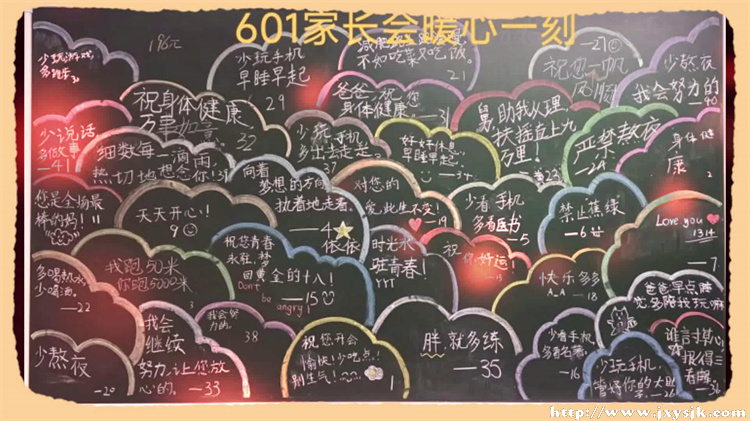 601家长会暖心一刻
少玩游戏
多跑步
196元
少玩手机
早睡早起
29
不如吃菜又吃饭。
21
27
祝您一帆
风顺
少熬夜
我会努力的
40
祝身体健康
万事如意
32
爸爸,祝您
身体健康。
31
助我入理,
扶摇直上九
万里!
23
严禁熬夜
24
身体健
康
少说话
多做事
41
细数每一滴雨
热切地想念你!31
少玩手机
多出去走走。
37
好好休息,
早睡早起。
34
您是全场最
棒的妈!!
11
天天开心!
9
向着
梦想的方向
执着地走着。
4
依依
对您的
爱,此生不变!
19
少看手机
多看医书
5
禁止蕉绿
6
Love you
1314
7
多喝热水
少喝酒。
22
我跑50米
你跑5000米
祝您青春
永驻,梦
回黄金的十八!
Don't
be angry
15
时光永
驻青春!
YYT
祝你好运!
快乐多多
18
爸爸早点睡
觉多陪我玩嘛
少熬夜
20
我会
继续
努力,让您放
心的。
33
我会努
力的。
38
祝您开会
愉快!少吃点!
别生气!
1
胖,就多练
35
少看手机
多看名著。
16
少玩手机,
管好你的大肚
26
谁言寸草心
报得三
春晖
36
http://www.jxysjk.com